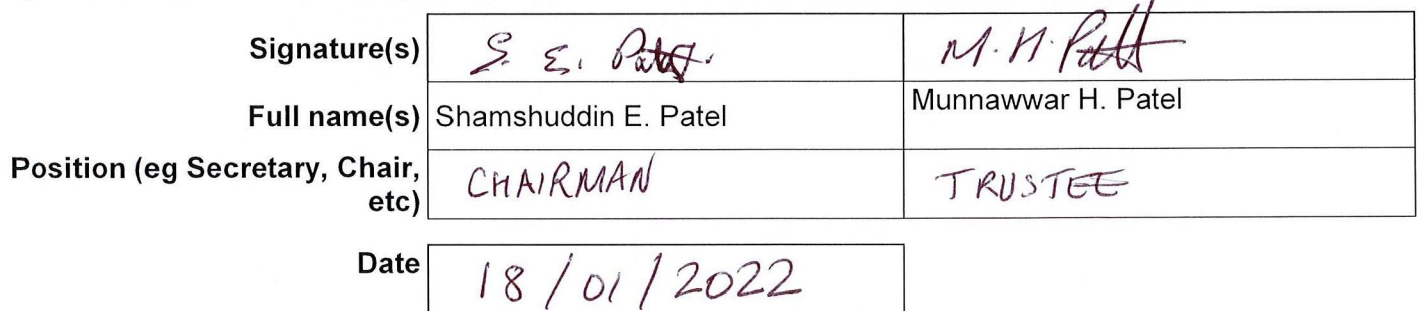 Signature(s) S. E. Patel. M. H. Patel
Full name(s) Shamshuddin E. Patel Munnawwar H. Patel
Position (eg Secretary, Chair, etc) CHAIRMAN TRUSTEE
Date 18/01/2022